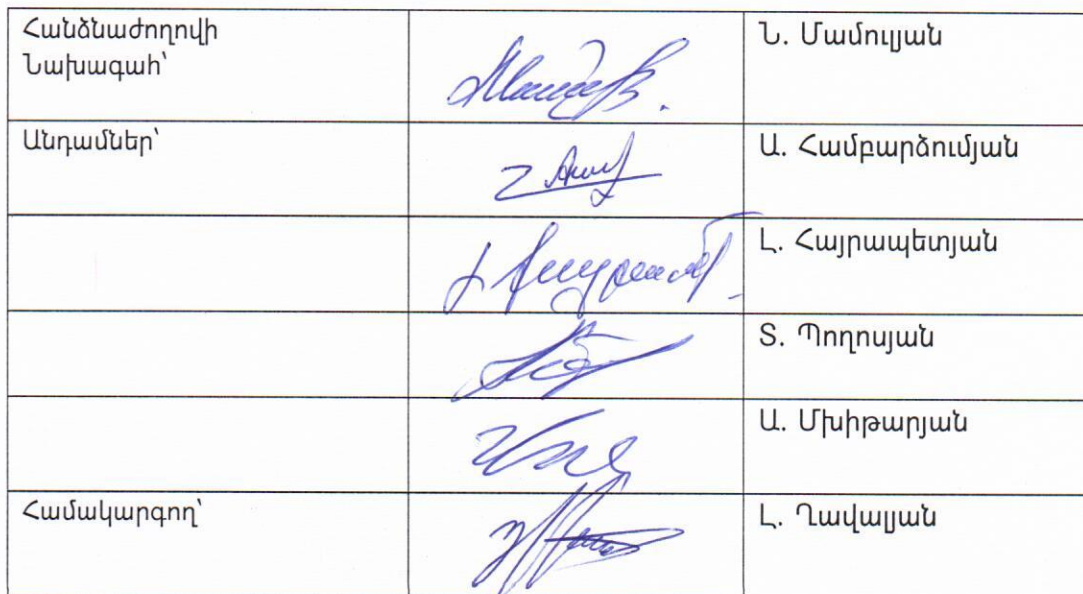 Հանձնաժողովի
Նախագահ՝
Ն. Մամուլյան
Անդամներ՝
Ա. Համբարձումյան
Լ. Հայրապետյան
Տ. Պողոսյան
Ա. Մխիթարյան
Համակարգող՝
Լ. Ղավալյան